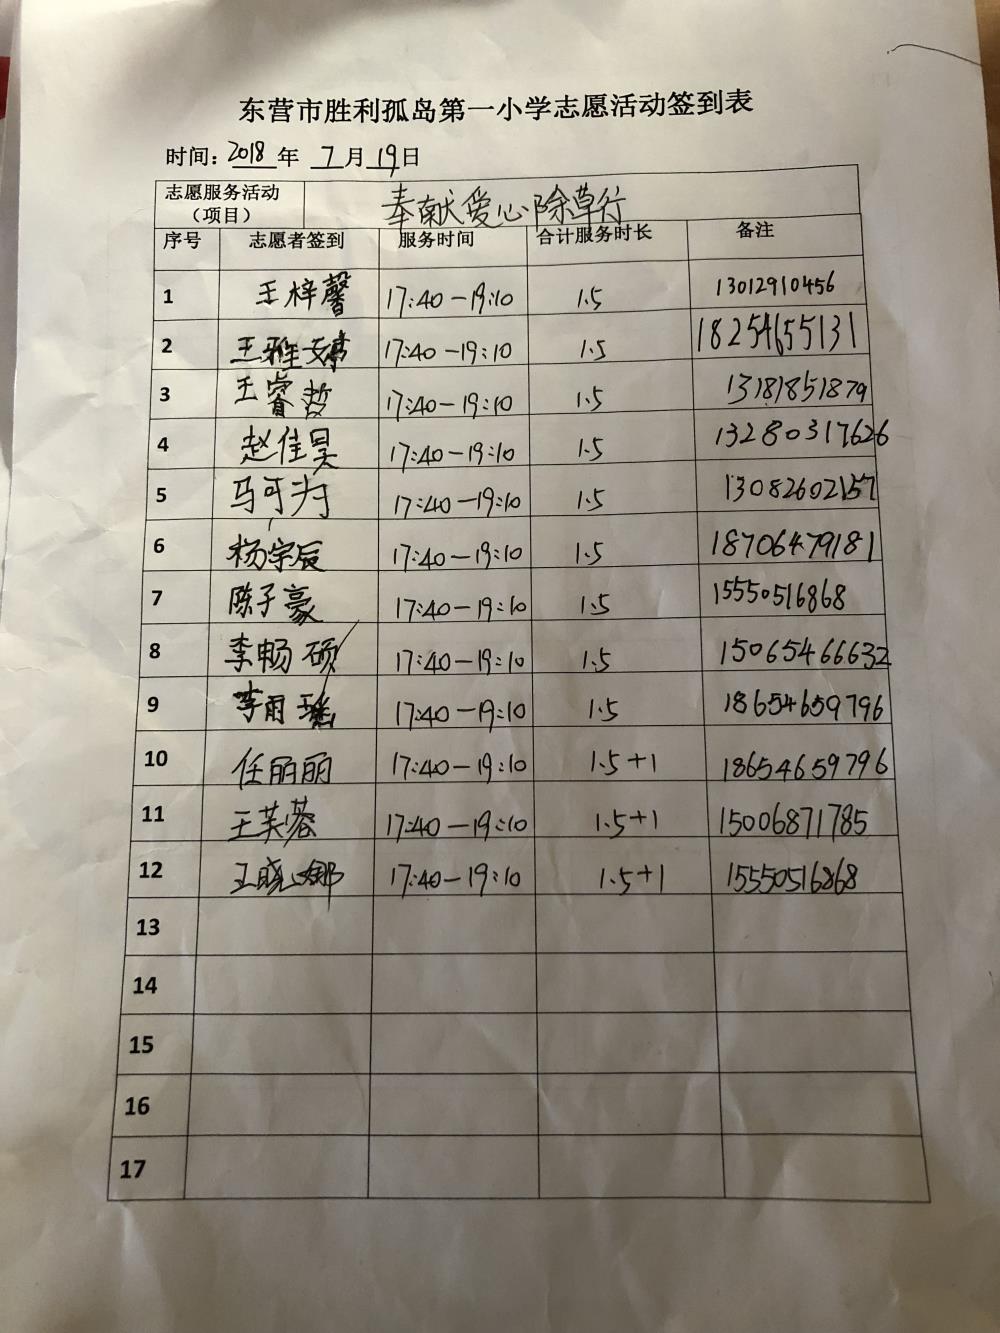 东营市胜利孤岛第一小学志愿活动签到表
时间：2018年 7月19日
志愿服务活动（项目） 奉献爱心除草行
序号 志愿者签到 服务时间 合计服务时长 备注
1 王梓馨 17:40-19:10 1.5 13012910456
2 王雅婷 17:40-19:10 1.5 18254655131
3 王睿哲 17:40-19:10 1.5 13181851879
4 赵佳昊 17:40-19:10 1.5 13280317626
5 马可为 17:40-19:10 1.5 13082602157
6 杨宇辰 17:40-19:10 1.5 18706479181
7 陈子豪 17:40-19:10 1.5 15550516868
8 李畅硕 17:40-19:10 1.5 15065466632
9 李雨 17:40-19:10 1.5 18654659796
10 任丽丽 17:40-19:10 1.5+1 18654659796
11 王芙蓉 17:40-19:10 1.5+1 15006871785
12 王晓娜 17:40-19:10 1.5+1 15550516868
13
14
15
16
17